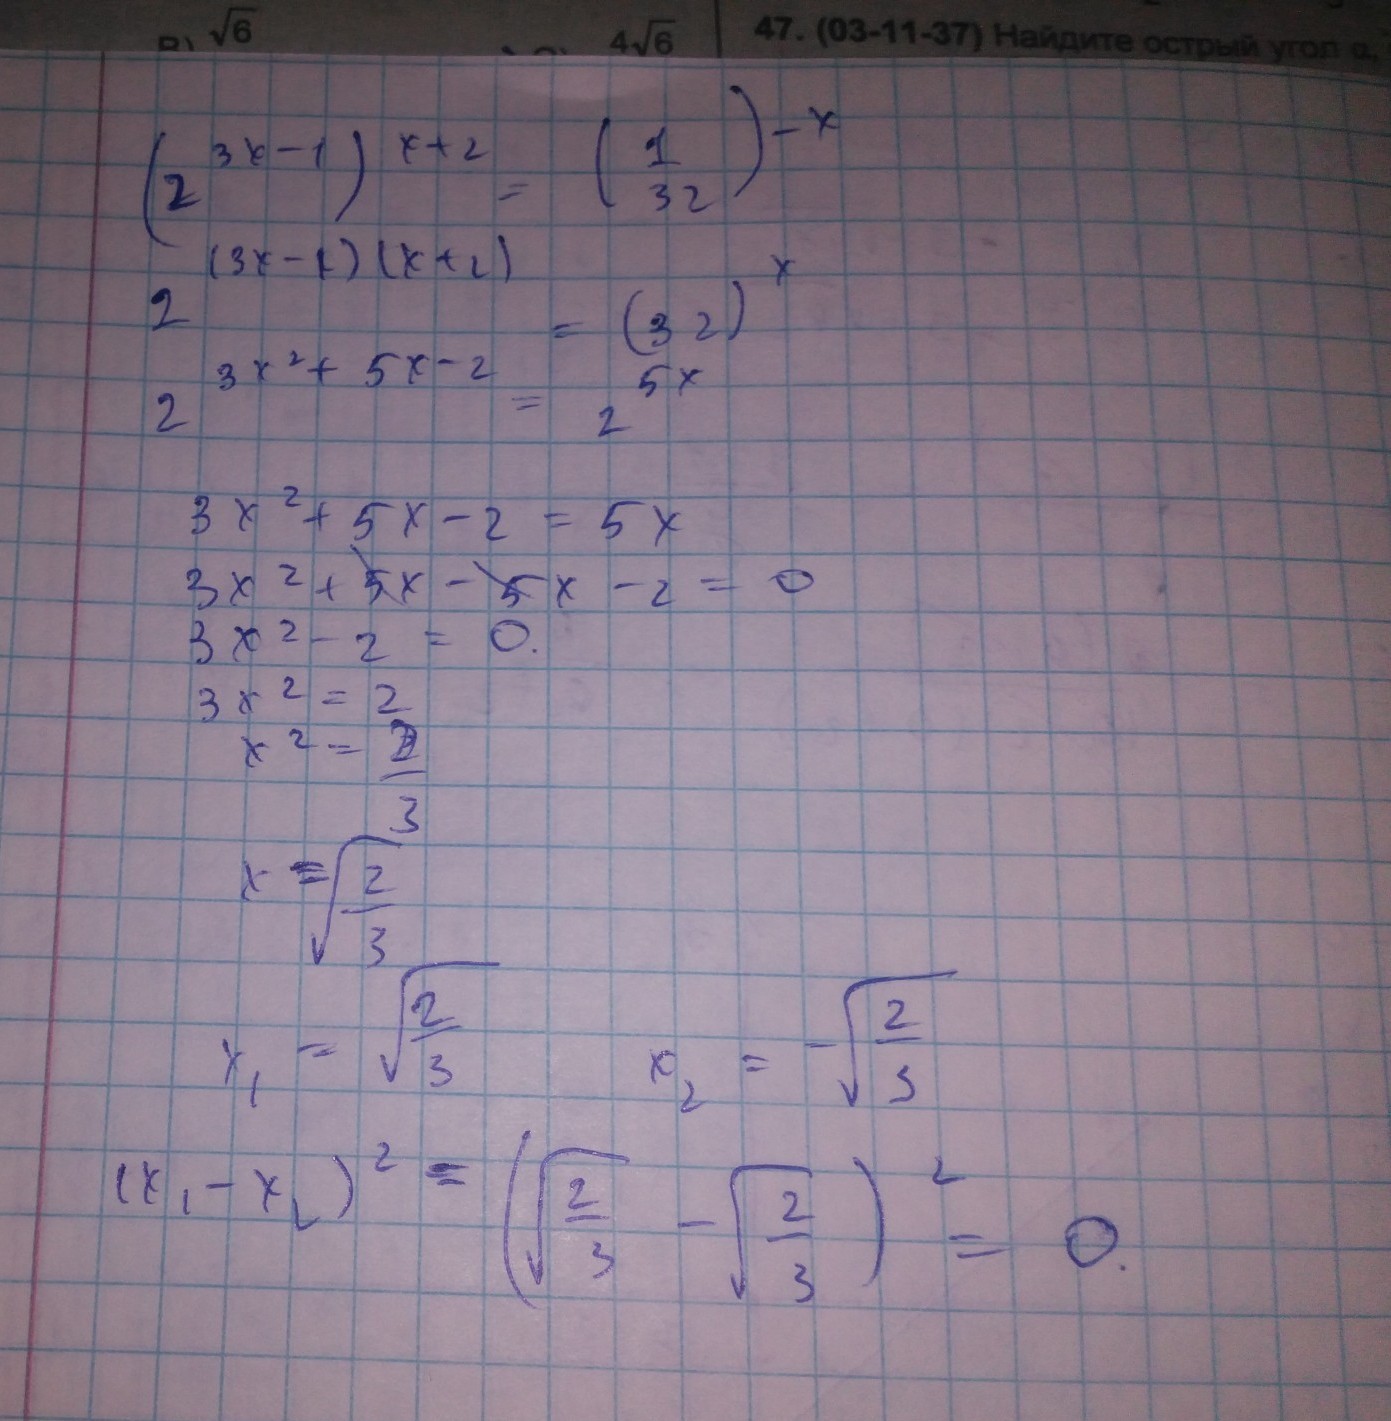 В) √6 4√6 47. (03-11-37) Найдите острый угол α,
(2^(3x-1))^(x+2) = (1/32)^(-x)
2^((3x-1)(x+2)) = (32)^x
2^(3x²+5x-2) = 2^(5x)
3x² + 5x - 2 = 5x
3x² + 5x - 5x - 2 = 0
3x² - 2 = 0.
3x² = 2
x² = 2/3
x = √(2/3)
x₁ = √(2/3) x₂ = -√(2/3)
(x₁ - x₂)² = (√(2/3) - √(2/3))² = 0.